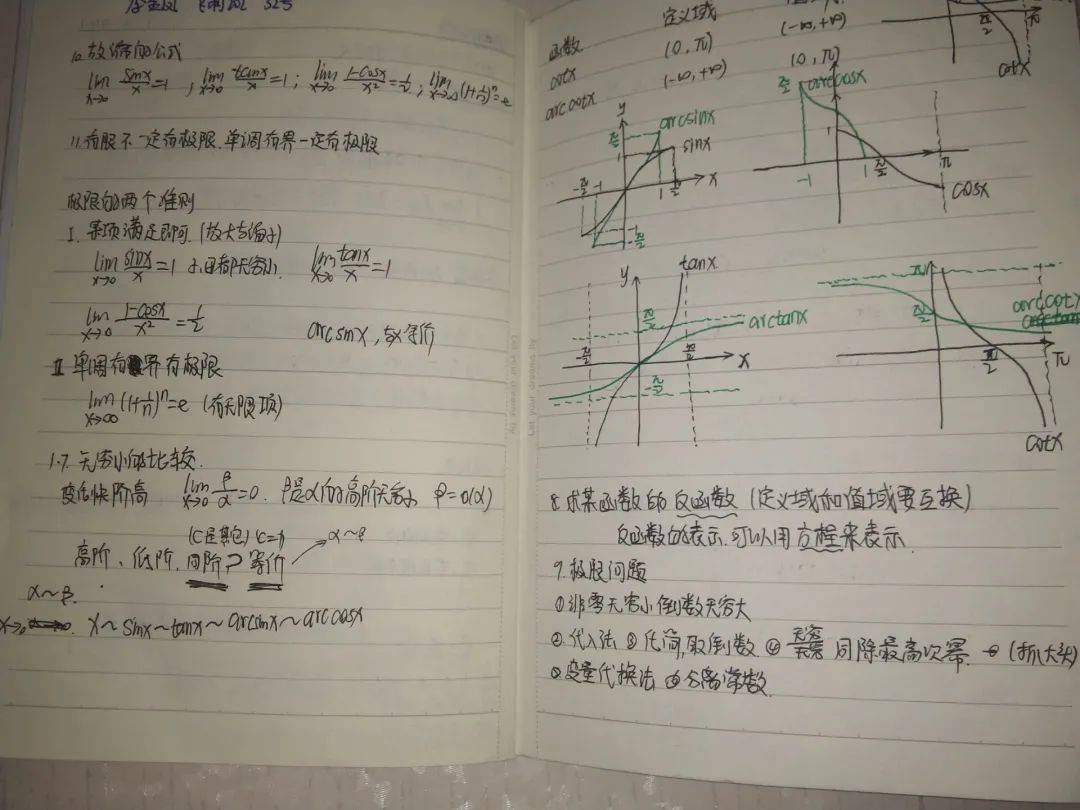 32号
10. 放缩的公式
lim x→0 sinx/x=1 , lim x→0 tanx/x=1 ; lim x→0 1-cosx/x²=1/2 ; lim x→∞ (1+1/n)ⁿ=e
11. 有限不一定有极限. 单调有界一定有极限
极限的两个准则
I. 某项满足即可. (放大与缩小)
lim x→0 sinx/x=1 lim x→0 tanx/x=1
lim x→0 1-cosx/x²=1/2 arcsinx, 与x等价
II 单调有界有极限
lim x→∞ (1+1/n)ⁿ=e (有无限项)
1.7. 无穷小的比较.
变化快阶高 lim x→0 β/α=0. β是α的高阶无穷小 β=o(α)
(C是其他) C=1 α~β
高阶、低阶, 同阶, 等价
α~β.
x→0 x~sinx~tanx~arcsinx~arccosx
函数 定义域
cotx (0,π) (-∞,+∞)
arccotx (-∞,+∞) (0,π)
π/2 π
cotx
y
π/2 arcsinx
1 sinx
-π/2 -1 1 π/2 x
-1
-π/2
π arccosx
1
-1 1 π/2 π
cosx
y tanx
π/2 arctanx
-π/2 π/2 x
-π/2
π
π/2 arccotx
π/2 π
cotx
8. 求某函数的反函数 (定义域和值域要互换)
反函数的表示. 可以用方程来表示.
9. 极限问题
①非零无穷小倒数无穷大
②代入法 ③化简,取倒数 ④ 无穷/无穷 同除最高次幂. (抓大头)
⑤变量代换法 ⑥分离常数.